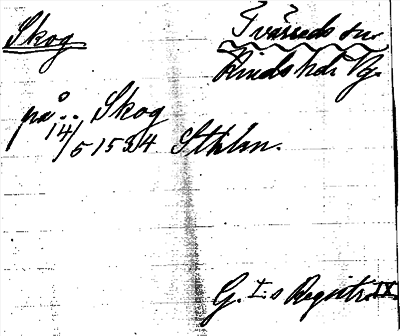 Skog
Tvärreds sn
Kinds hd Vg.
på.. Skog
14/5 1534 Sthlm.
G. I.s Registr. IX